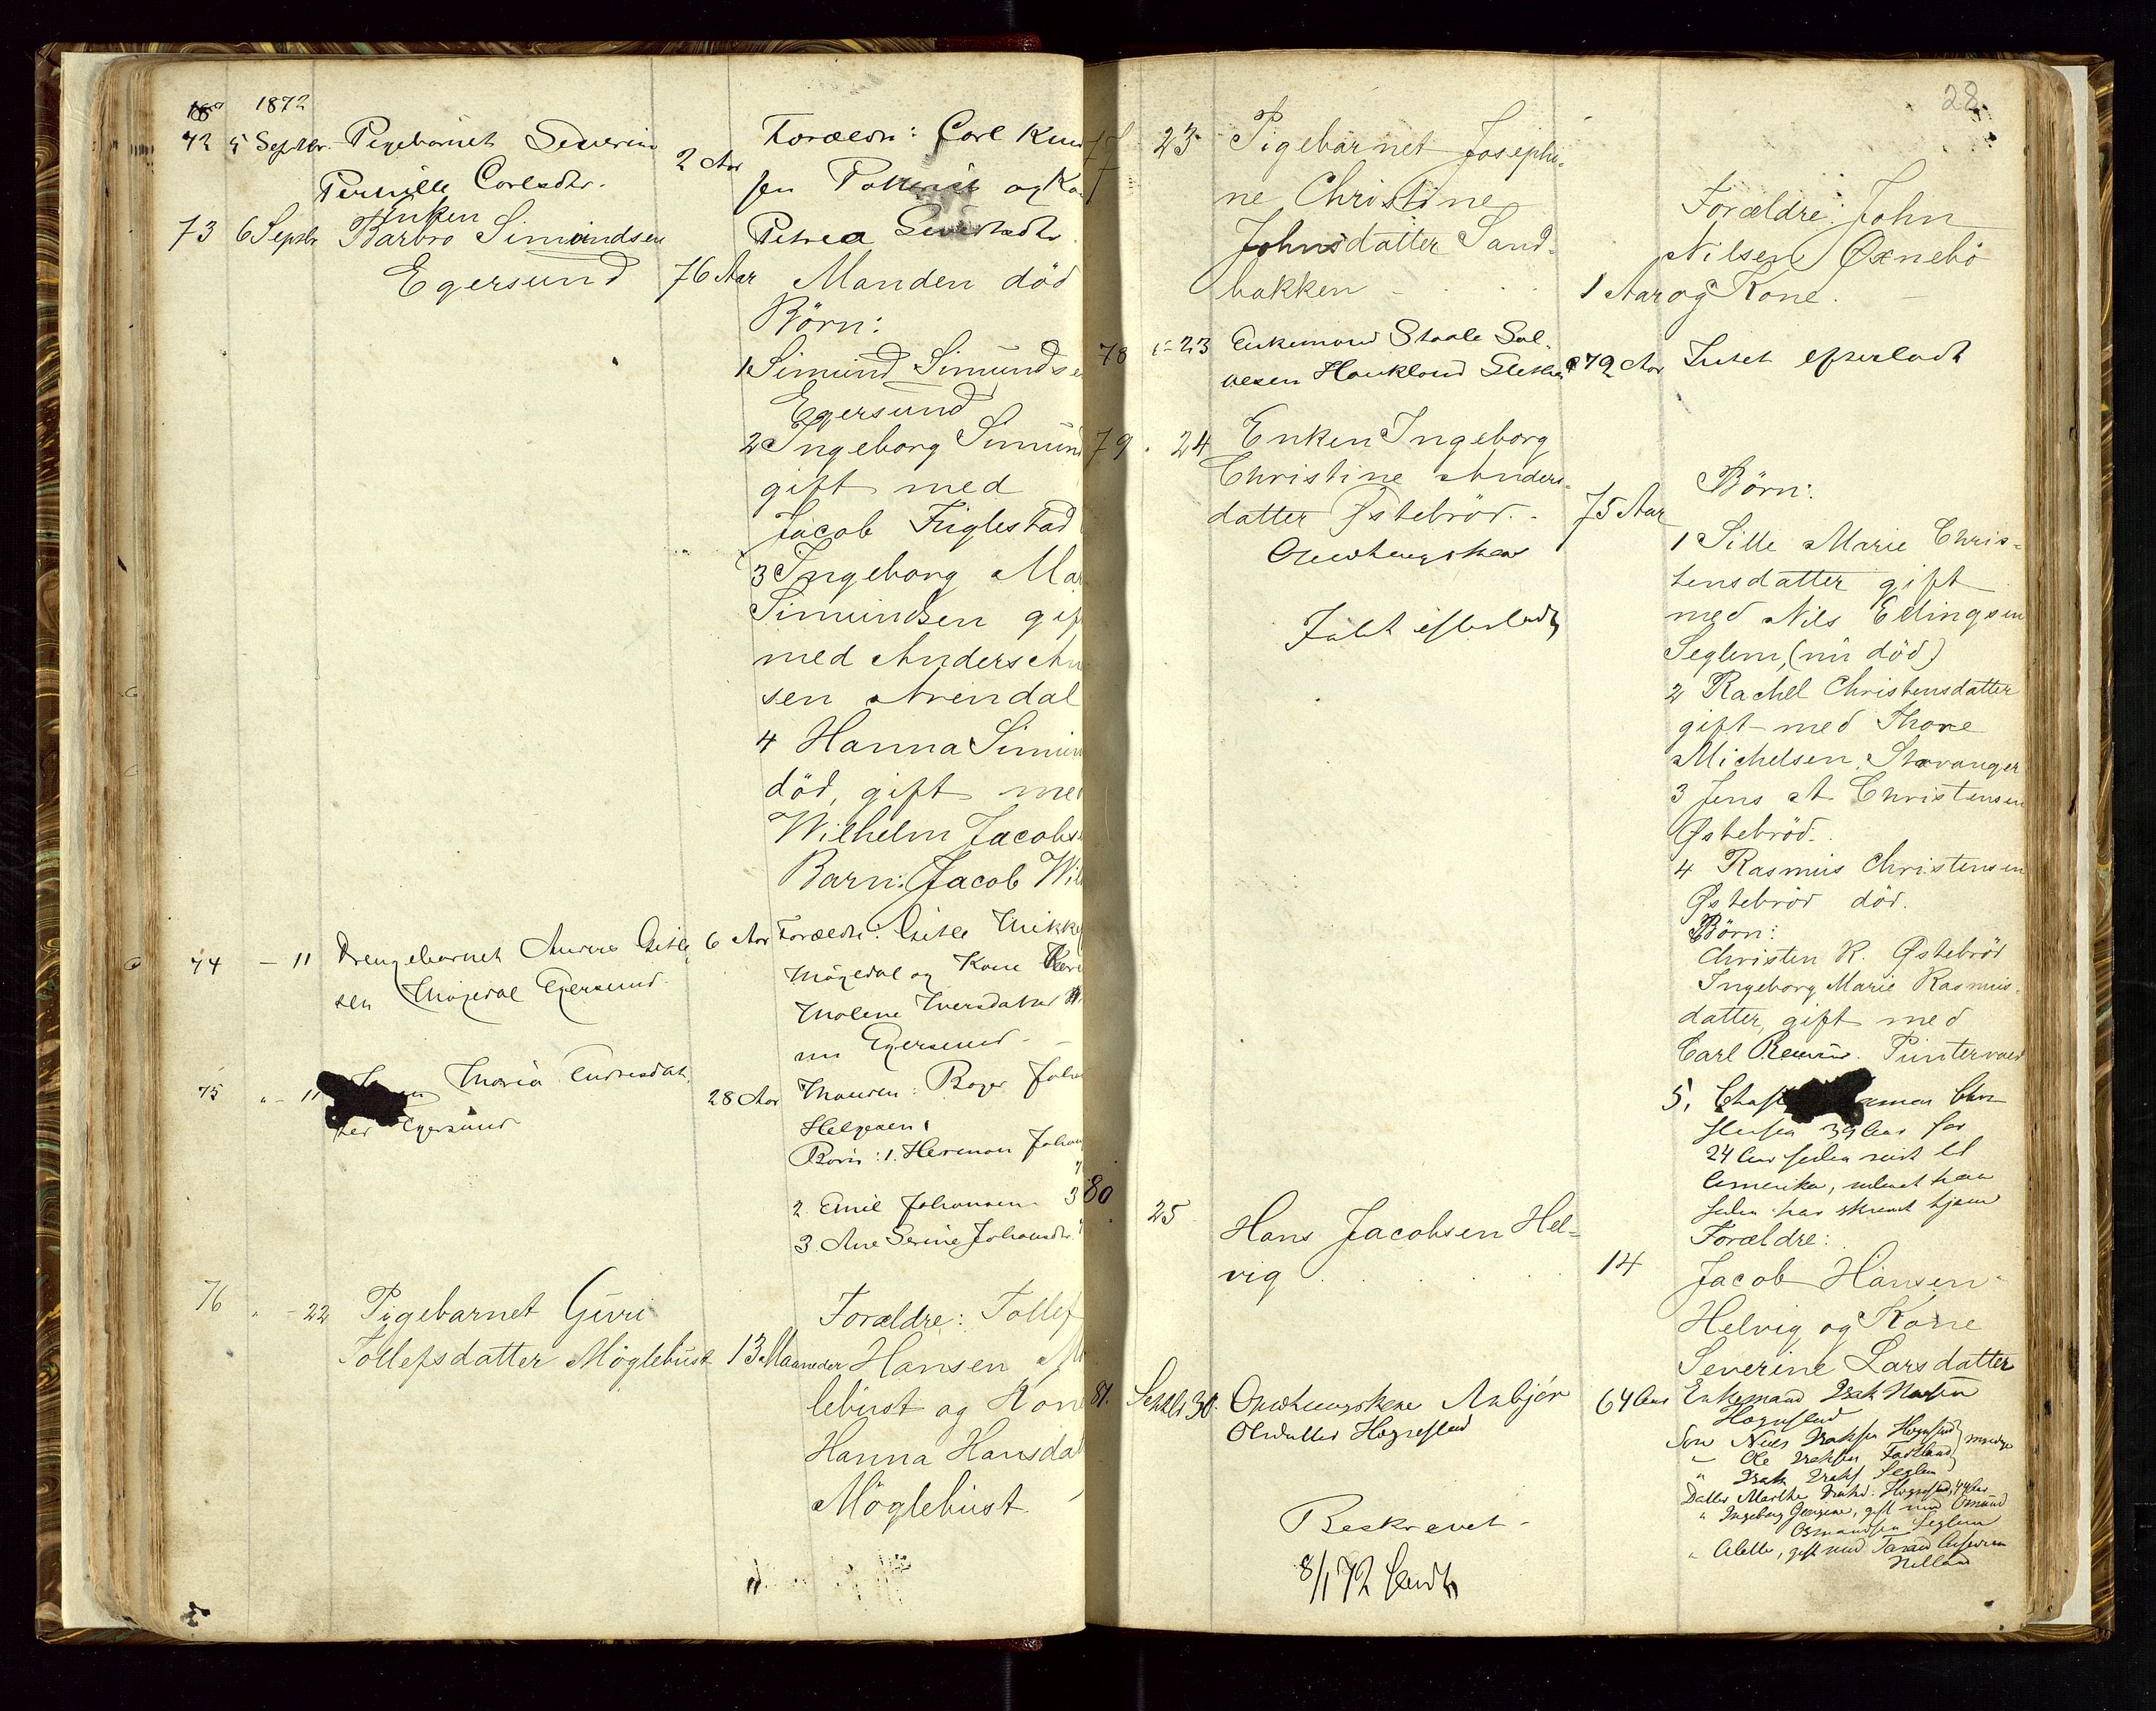 1872
72 5 Septbr. Pigebarnet Severine
Pernille Carlsdtr.
2 Aar
Forældre: Carl Knud
sen og Kone
Petrea
73 6 Septbr Enken
Barbro Simundsen
Egersund 76 Aar Manden död
Börn:
1 Simund Simundsen
Egersund
2 Ingeborg Simund
gift med
Jacob Fuglestad
3 Ingeborg Mar
Simundsen gif
med Anders An
sen Arendal
4 Hanna Simun
död, gift med
Wilhelm Jacobs
Barn: Jacob Wil
74 - 11 Drengebarnet Gitle
sen Mögedal Egersund
6 Aar Forældre: Gitle Mikke
Mögedal og Kone
Malene Iversdatter
nu Egersund
75 " - 11 Maria Endresdat
ter Egersund
28 Aar Manden: Roger Johan
Helgesen
Börn: 1. Herman Johan
2. Emil Johansen 3
3. Ane Serine Johansdtr.
76 " - 22 Pigebarnet Guri
Tollefsdatter Möglebust 13 Maaneder
Forældre: Tollef
Hansen Mög
lebust og Kone
Hanna Hansdat
Möglebust
28
77 23 Pigebarnet Josephi-
ne Christine
Johnsdatter Sand-
bakken 1 Aar
Forældre: John
Nilsen Øxnebö
og Kone.
78 - 23 Enkemand Staale Sal-
vesen Haukland 79 Aar Intet efterladt
79 . 24 Enken Ingeborg
Christine Anders-
datter Østebröd. 75 Aar
Opvartningskone
Intet efterladt
Börn:
1 Sille Marie Chris-
tensdatter gift
med Nils Edlingsen
Seglem, (nu död)
2 Rachel Christensdatter
gift med Thore
Michelsen, Stavanger
3 Jens A Christensen
Østebröd.
4 Rasmus Christensen
Østebröd död.
Börn:
Christen R. Østebröd
Ingeborg Marie Rasmus-
datter, gift med
Carl Puntervold
5. Chri
stensen 39 Aar for
24 Aar siden reist til
Amerika, hvorfra han
siden har skrevet hjem
80 25 Hans Jacobsen Hel-
vig 14
Forældre:
Jacob Hansen
Helvig og Kone
Severine Larsdatter
81. Septbr 30. Asbjör
Olsdatter Hognestad
64 Aar Enkemand Isak
Hognestad
Sön Niels Isaksen Hognestad
" Ole Isaksen myndige
" Isak Isaks. Seglem
Datter Marthe Isaksd. Hognestad,
" Ingeborg gift med Osmund
Osmundsen Seglem
" gift med
Beskrevet
8/1 72 Sendt